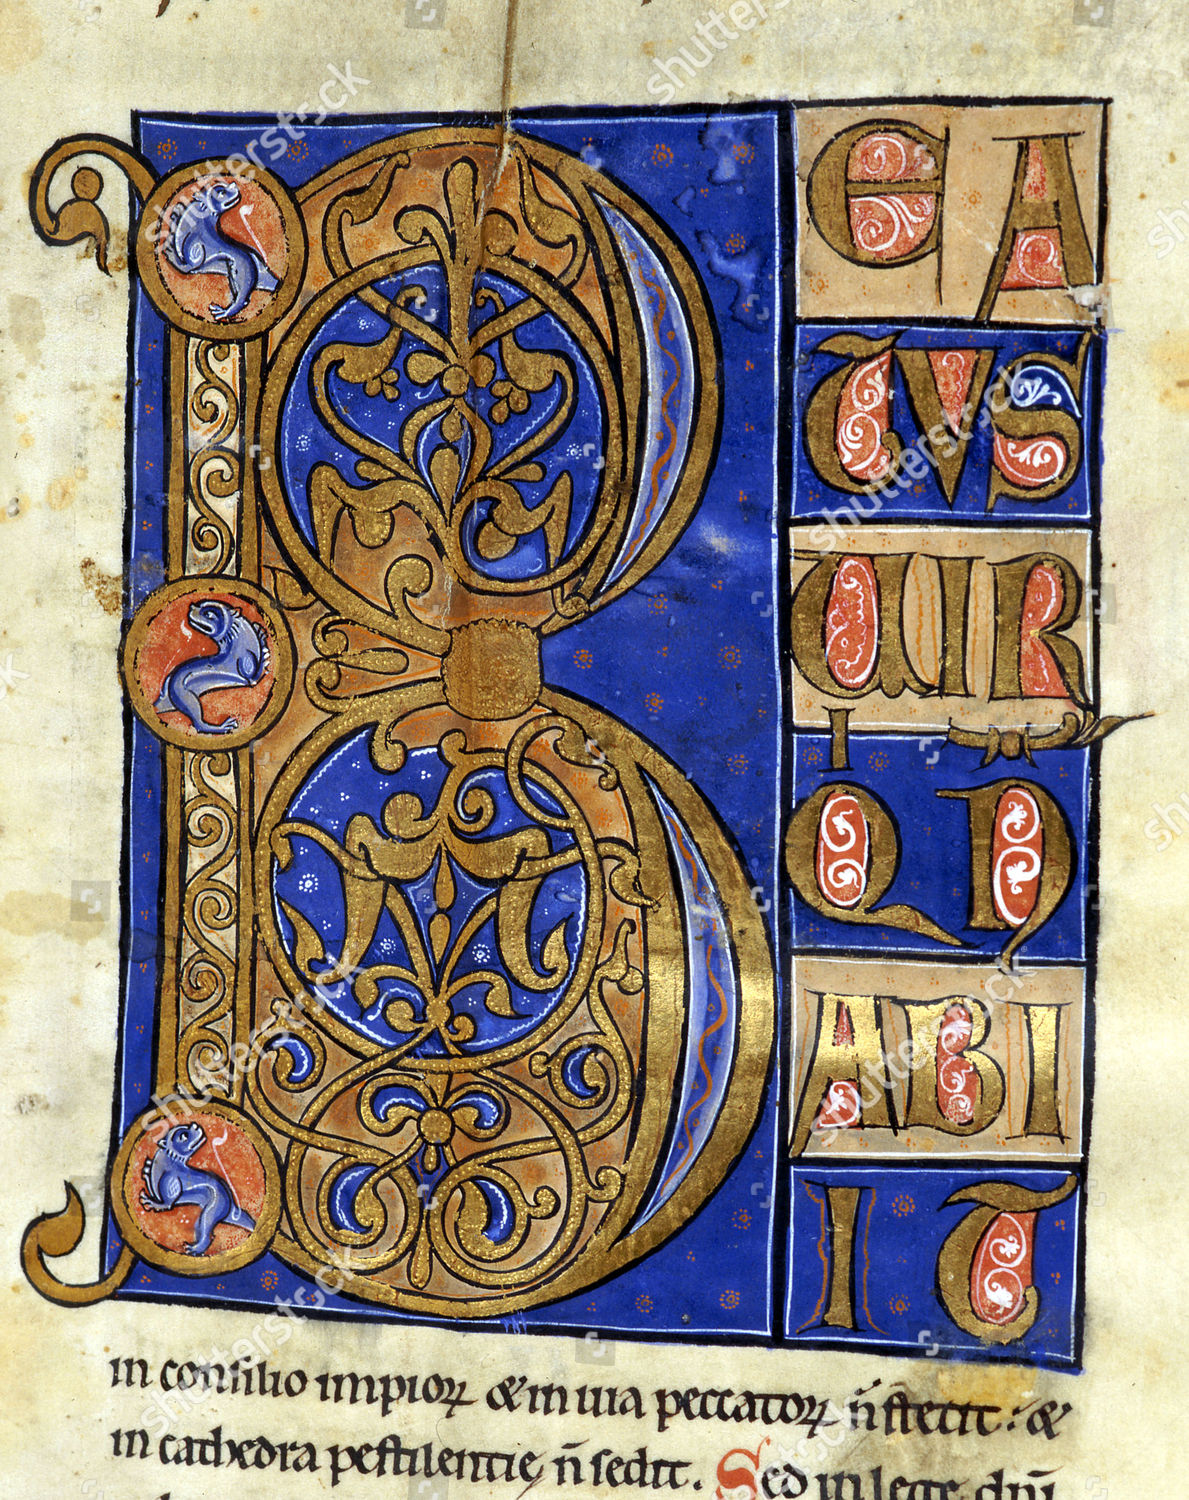 B
EA
TVS
UIR
I
QN
ABI
IT
in consilio impioꝝ & in uia peccatoꝝ n̄ stetit. &
in cathedra pestilentie n̄ sedit. Sed in lege dn̄i